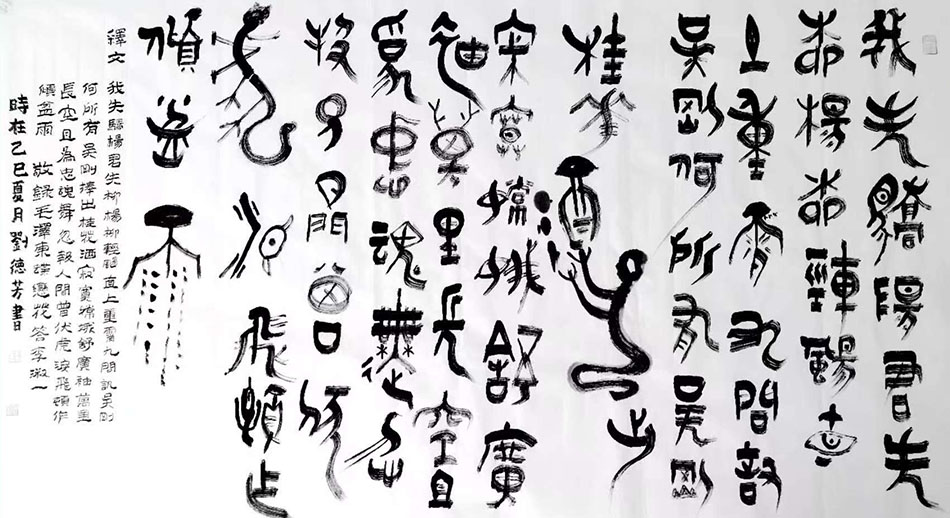 我失驕陽君失
柳楊柳輕颺直
上重霄九問訊
吳剛何所有吳剛
捧出桂花酒
寂寞嫦娥舒廣
袖萬里長空且
爲忠魂舞忽
報人間曾伏
虎淚飛頓作
傾盆雨
釋文 我失驕楊君失柳楊柳輕颺直上重霄九問訊吴剛
何所有吴剛捧出桂花酒寂寞嫦娥舒廣袖萬里
長空且為忠魂舞忽報人間曾伏虎淚飛頓作
傾盆雨 敬錄毛澤東蝶戀花答李淑一
時在乙巳夏月劉德芳書